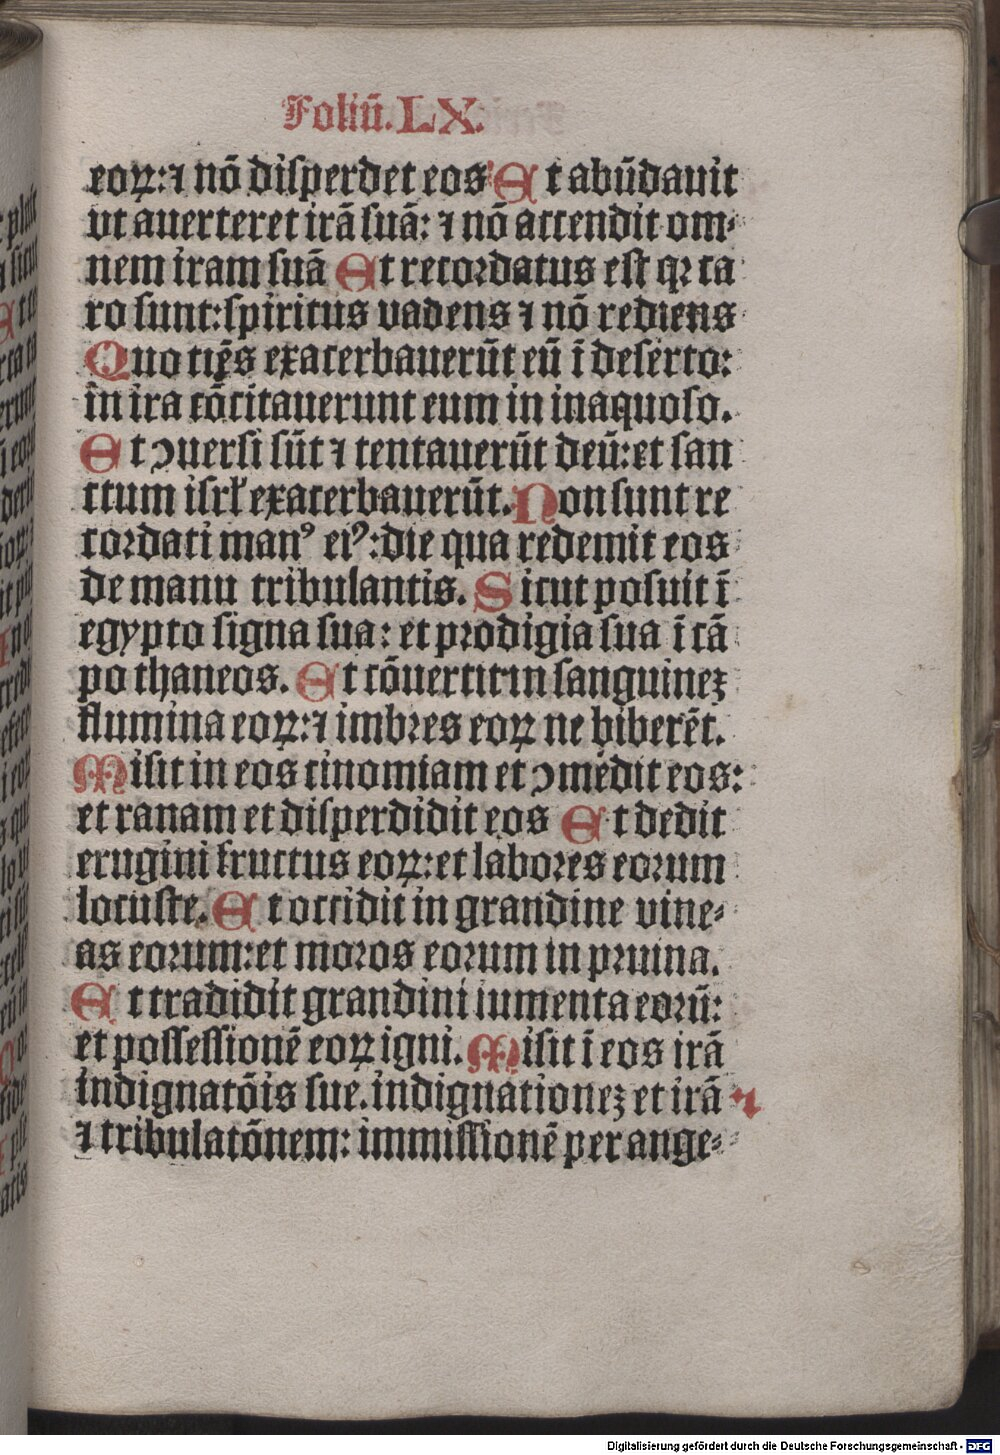 Foliū. LX.
eoꝝ: ⁊ nō disperdet eos Et abūdauit
vt auerteret irā suā: ⁊ nō accendit om⸗
nem iram suā Et recordatus est qꝛ ca
ro sunt: spiritus vadens ⁊ nō rediens
Quotiēs exacerbauerūt eū ī deserto:
in ira cōcitauerunt eum in inaquoso.
Et ↄuersi sūt ⁊ tentauerūt deū: et san
ctum isrł exacerbauerūt. Non sunt re
cordati manꝰ eiꝰ: die qua redemit eos
de manu tribulantis. Sicut posuit ī
egypto signa sua: et prodigia sua ī cā
po thaneos. Et cōuertit in sanguineꝫ
flumina eoꝝ: ⁊ imbres eoꝝ ne biberēt.
Misit in eos cinomiam et ↄmēdit eos:
et ranam et disperdidit eos Et dedit
erugini fructus eoꝝ: et labores eorum
locuste. Et occidit in grandine vine⸗
as eorum: et moros eorum in pruina.
Et tradidit grandini iumenta eorū:
et possessionē eoꝝ igni. Misit ī eos irā
indignatōis sue. indignationeꝫ et irā ⁊
⁊ tribulatōnem: immissionē per ange⸗
Digitalisierung gefördert durch die Deutsche Forschungsgemeinschaft - DFG